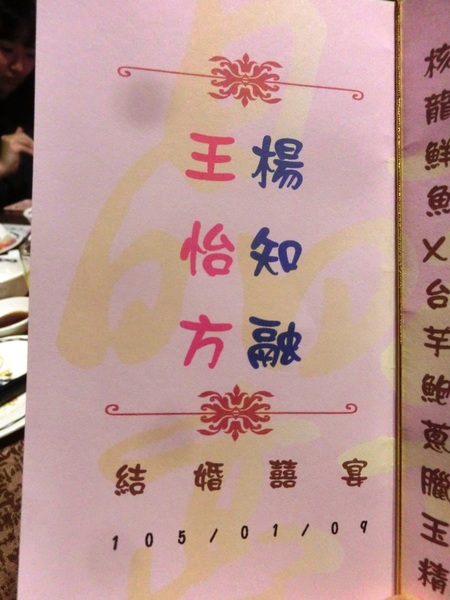 楊知融
王怡方
結婚囍宴
105/01/09
核
龍
鮮
魚
ㄨ
台
芋
鮑
蔥
臘
玉
精